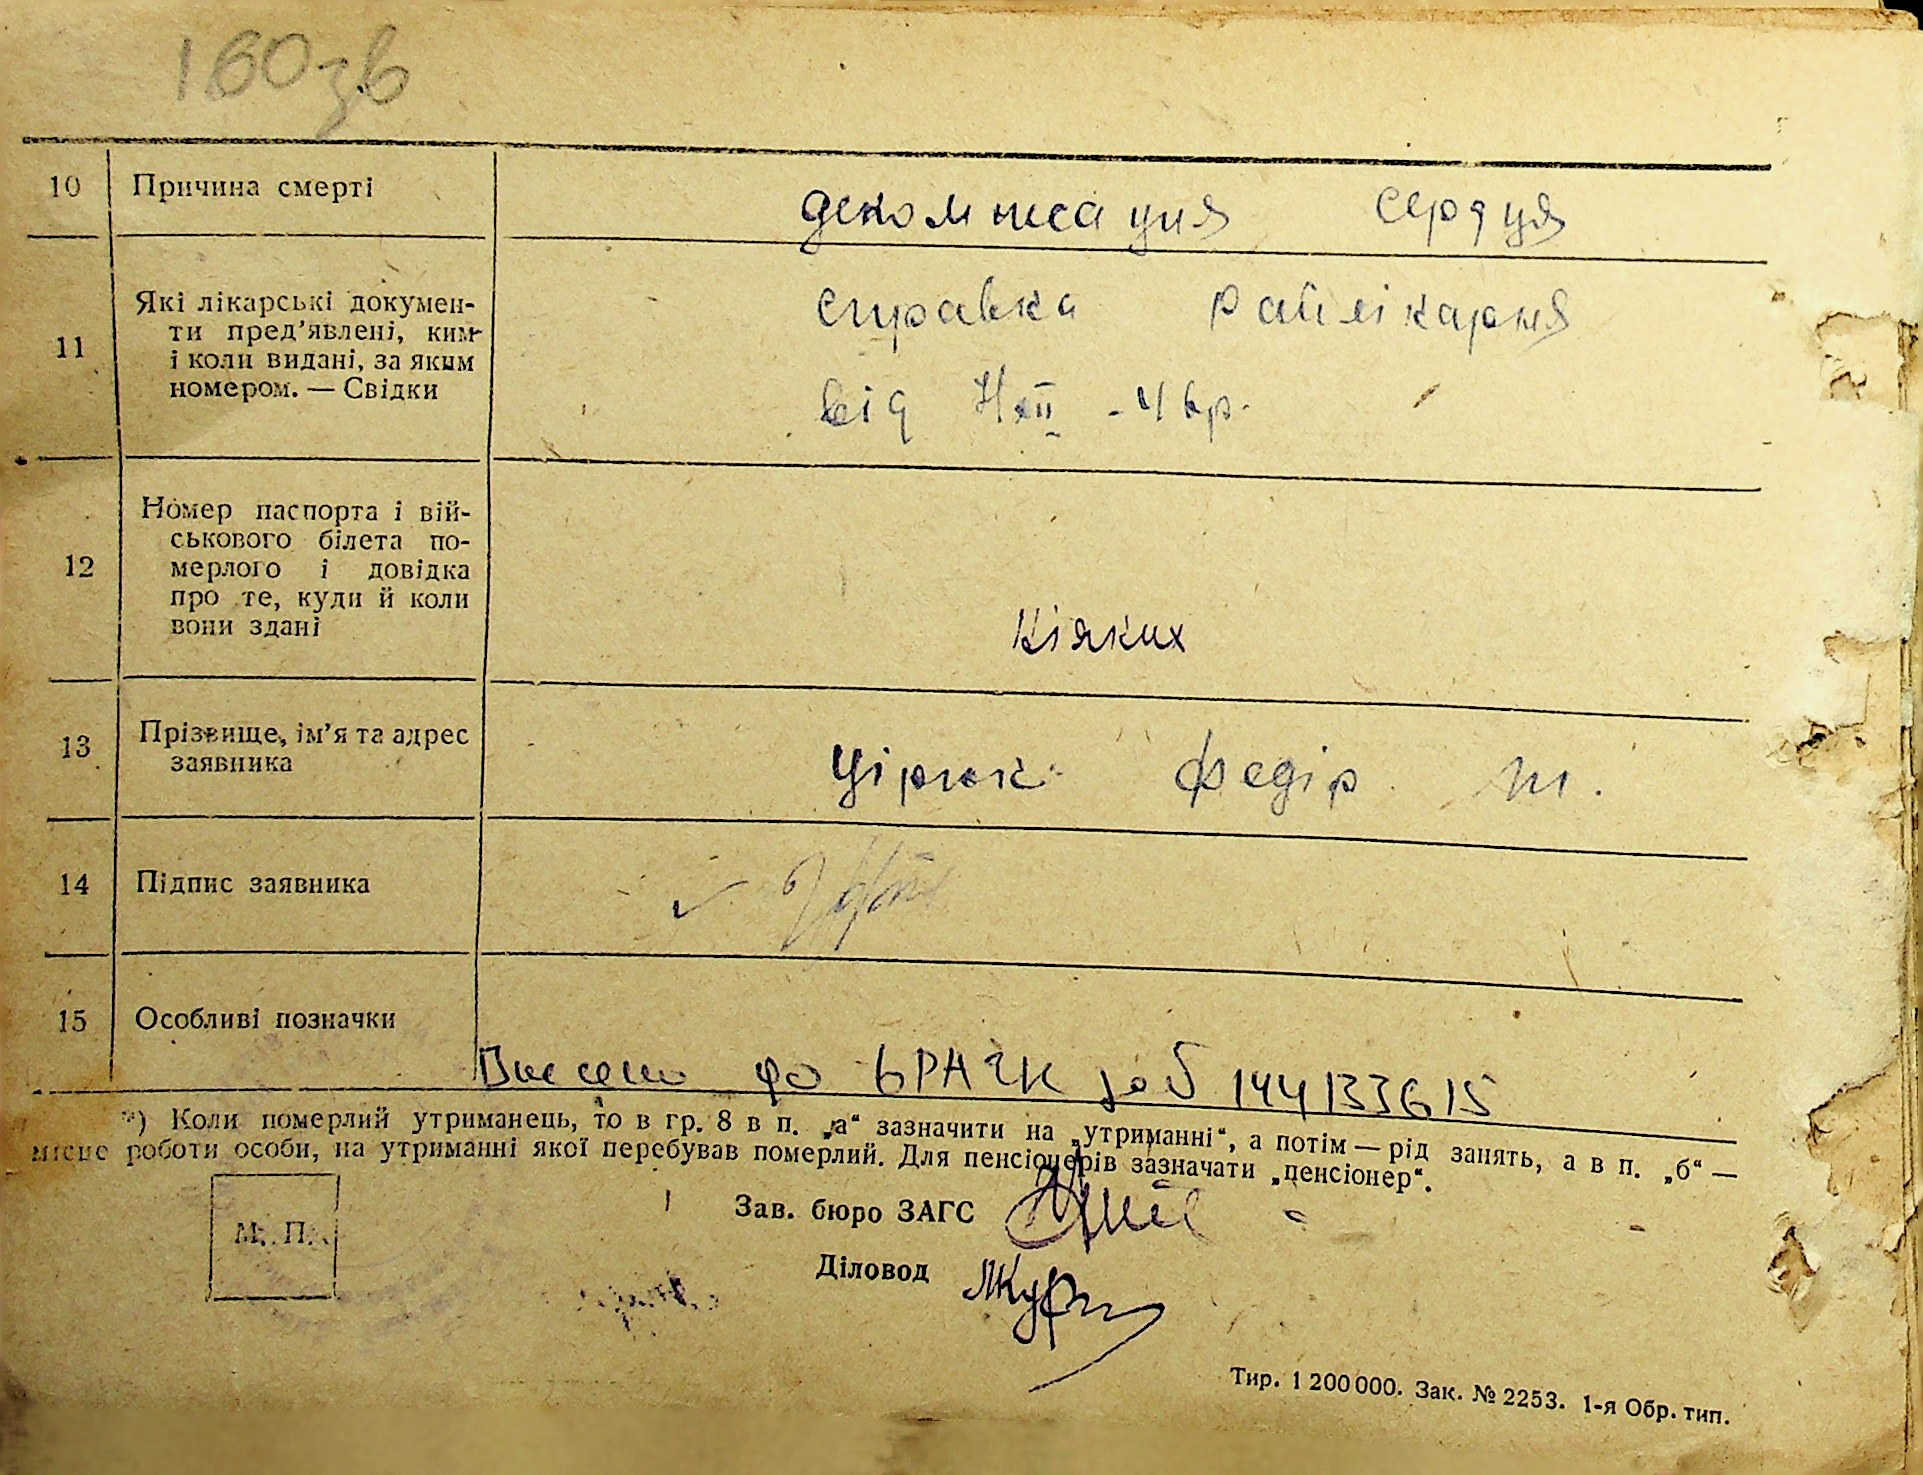 160зв
10 Причина смерті декомпесация сердця
11 Які лікарські документи пред'явлені, ким і коли видані, за яким номером. — Свідки
справка райлікарня
від
12 Номер паспорта і військового білета померлого і довідка про те, куди й коли вони здані
ніяких
13 Прізвище, ім'я та адрес заявника Федір
14 Підпис заявника
15 Особливі позначки
Внесено до ДРАЦГК за № 144133615
*) Коли померлий утриманець, то в гр. 8 в п. „а“ зазначити на „утриманні“, а потім — рід занять, а в п. „б“ —
місце роботи особи, на утриманні якої перебував померлий. Для пенсіонерів зазначати „пенсіонер“.
Зав. бюро ЗАГС
М. П.
Діловод
Тир. 1 200 000. Зак. № 2253. 1-я Обр. тип.